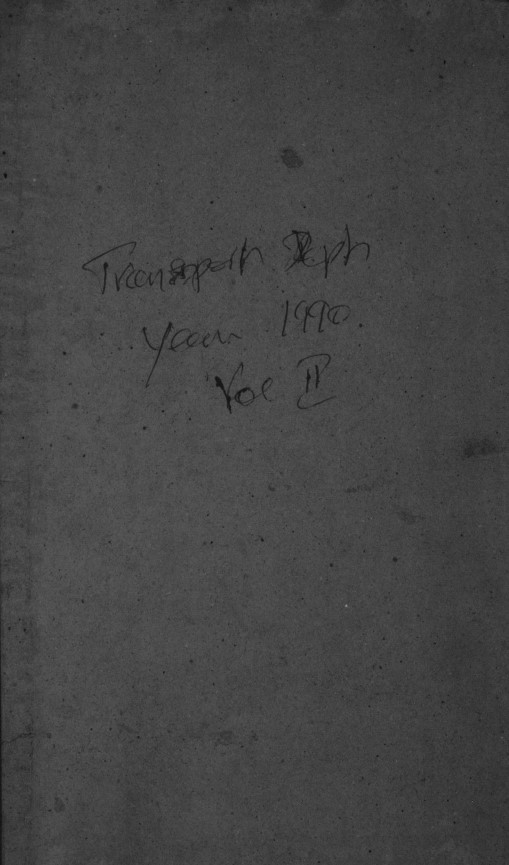 Transport Dept
Year 1990.
Vol II